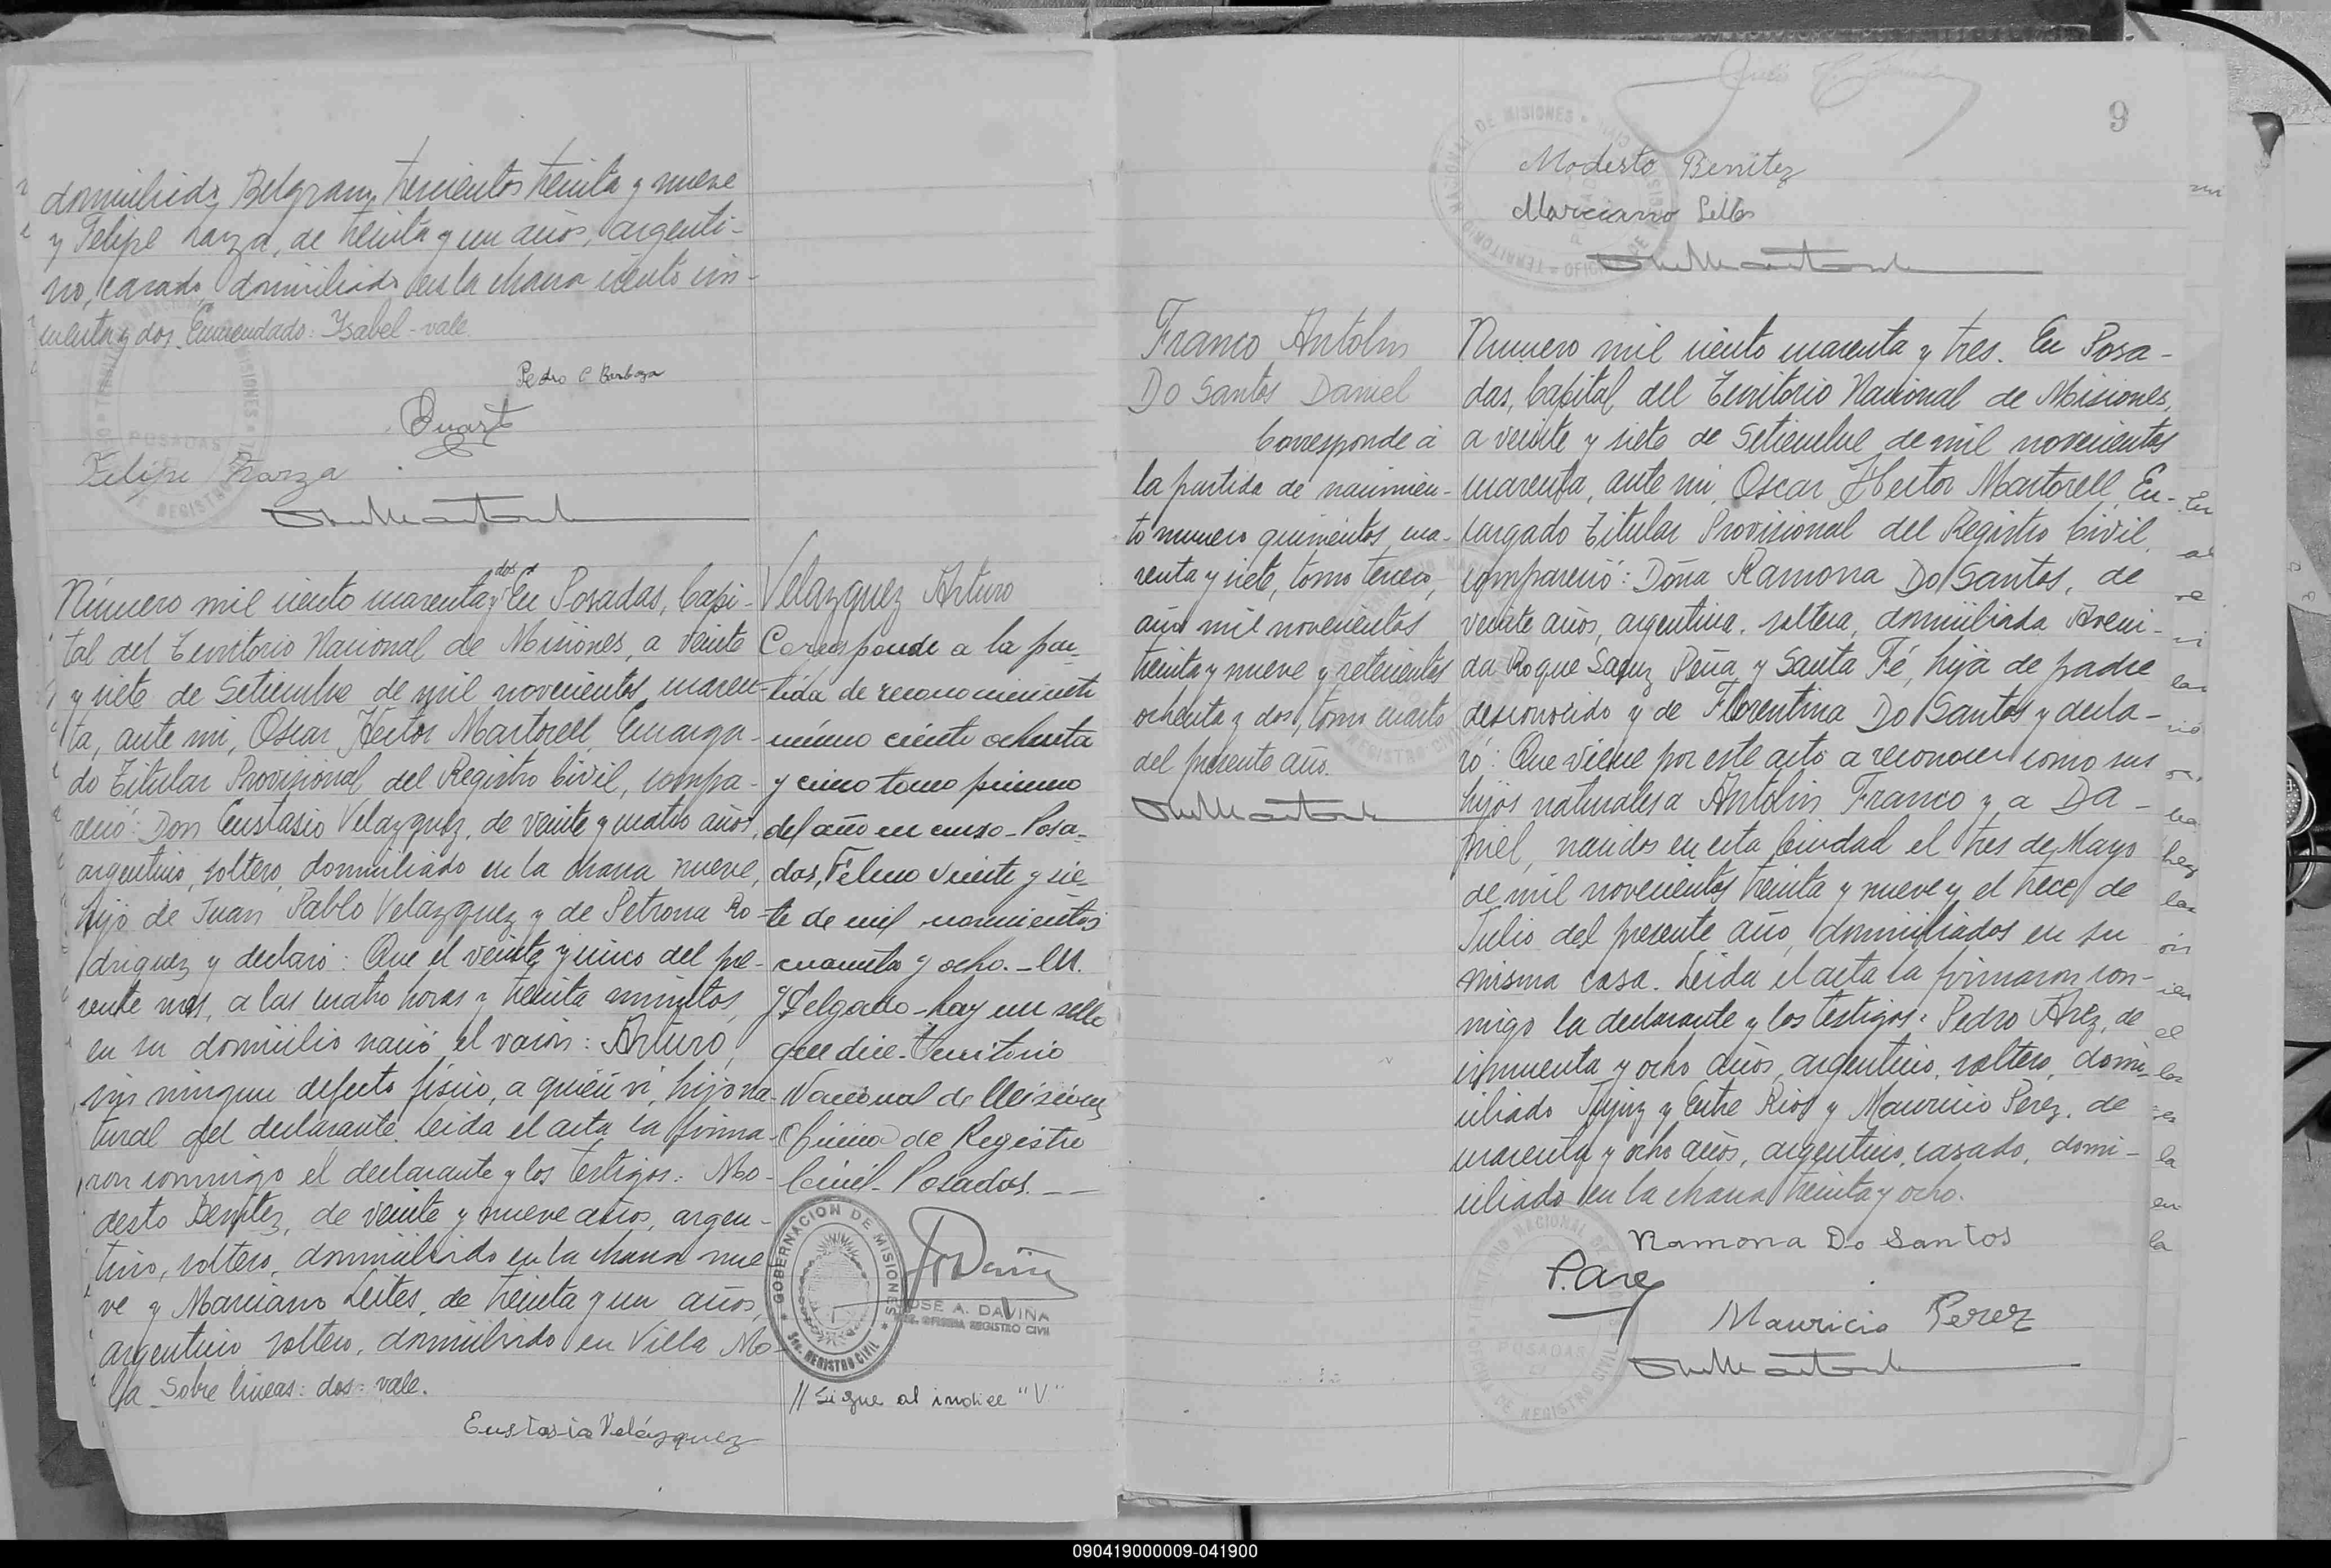 domiciliado Belgrano trescientos treinta y nueve
y Felipe Garza, de treinta y un años, argenti-
no, casado, domiciliado en la chacra ciento cin-
cuenta y dos. Enmendado: Ysabel - vale.
Pedro C Barboza
Duarte
Felipe Garza
Número mil ciento cuarenta y dos En Posadas, Capi-
tal del Territorio Nacional de Misiones, a veinte
y siete de Setiembre de mil novecientos cuaren-
ta, ante mi, Oscar Héctor Martorell, Encarga-
do Titular Provisional del Registro Civil, compa-
reció: Don Eustasio Velazquez, de veinte y cuatro años,
argentino, soltero, domiciliado en la chacra nueve,
hijo de Juan Pablo Velazquez y de Petrona Ro-
driguez y declaró: Que el veinte y cinco del pre-
sente mes, a las cuatro horas y treinta minutos,
en su domicilio nació el varón: Arturo,
sin ningun defecto físico, a quién ví, hijo na-
tural del declarante. Leida el acta la firma-
ron conmigo el declarante y los testigos: Mo-
desto Benitez, de veinte y nueve años, argen-
tino, soltero, domiciliado en la chacra nue-
ve y Marciano Leites, de treinta y un años,
argentino soltero, domiciliado en Villa Mo-
la. Sobre lineas: dos: vale.
Eustasio Velázquez
Velazquez Arturo
Corresponde a la par-
tida de reconocimiento
número ciento ochenta
y cinco tomo primero
del año en curso - Posa-
das, Febrero veinte y sie-
te de mil novecientos
cuarenta y ocho. -
Delgado - hay un sello
que dice - Territorio
Nacional de Misiones
Oficina de Registro
Civil - Posadas. --
GOBERNACION DE MISIONES
Sec. REGISTRO CIVIL
JOSE A. DAVIÑA
OFICINA REGISTRO CIVIL
// Sigue al indice "V"
9
Modesto Benitez
Marciano Leites
Franco Antolin
Do Santos Daniel
Corresponde á
la partida de nacimien-
to numero quinientos cua-
renta y siete, tomo tercero,
año mil novecientos
treinta y nueve y setecientos
ochenta y dos, tomo cuarto
del presente año.
Numero mil ciento cuarenta y tres. En Posa-
das, Capital del Territorio Nacional de Misiones,
a veinte y siete de Setiembre de mil novecientos
cuarenta, ante mi, Oscar Héctor Martorell, En-
cargado Titular Provisional del Registro Civil,
compareció: Doña Ramona Do Santos, de
veinte años, argentina, soltera, domiciliada Aveni-
da Roque Saenz Peña y Santa Fé, hija de padre
desconocido y de Florentina Do Santos y decla-
ró: Que viene por este acto a reconocer como sus
hijos naturales a Antolin Franco y a Da-
niel, nacidos en esta Ciudad el tres de Mayo
de mil novecientos treinta y nueve y el trece de
Julio del presente año, domiciliados en su
misma casa. Leida el acta la firmaron con-
migo la declarante y los testigos: Pedro Arez, de
cincuenta y ocho años, argentino, soltero, domi-
ciliado Jujuy y Entre Rios y Mauricio Perez, de
cuarenta y ocho años, argentino, casado, domi-
ciliado en la chacra treinta y ocho.
Ramona Do Santos
P. Arez
Mauricio Perez
090419000009-041900